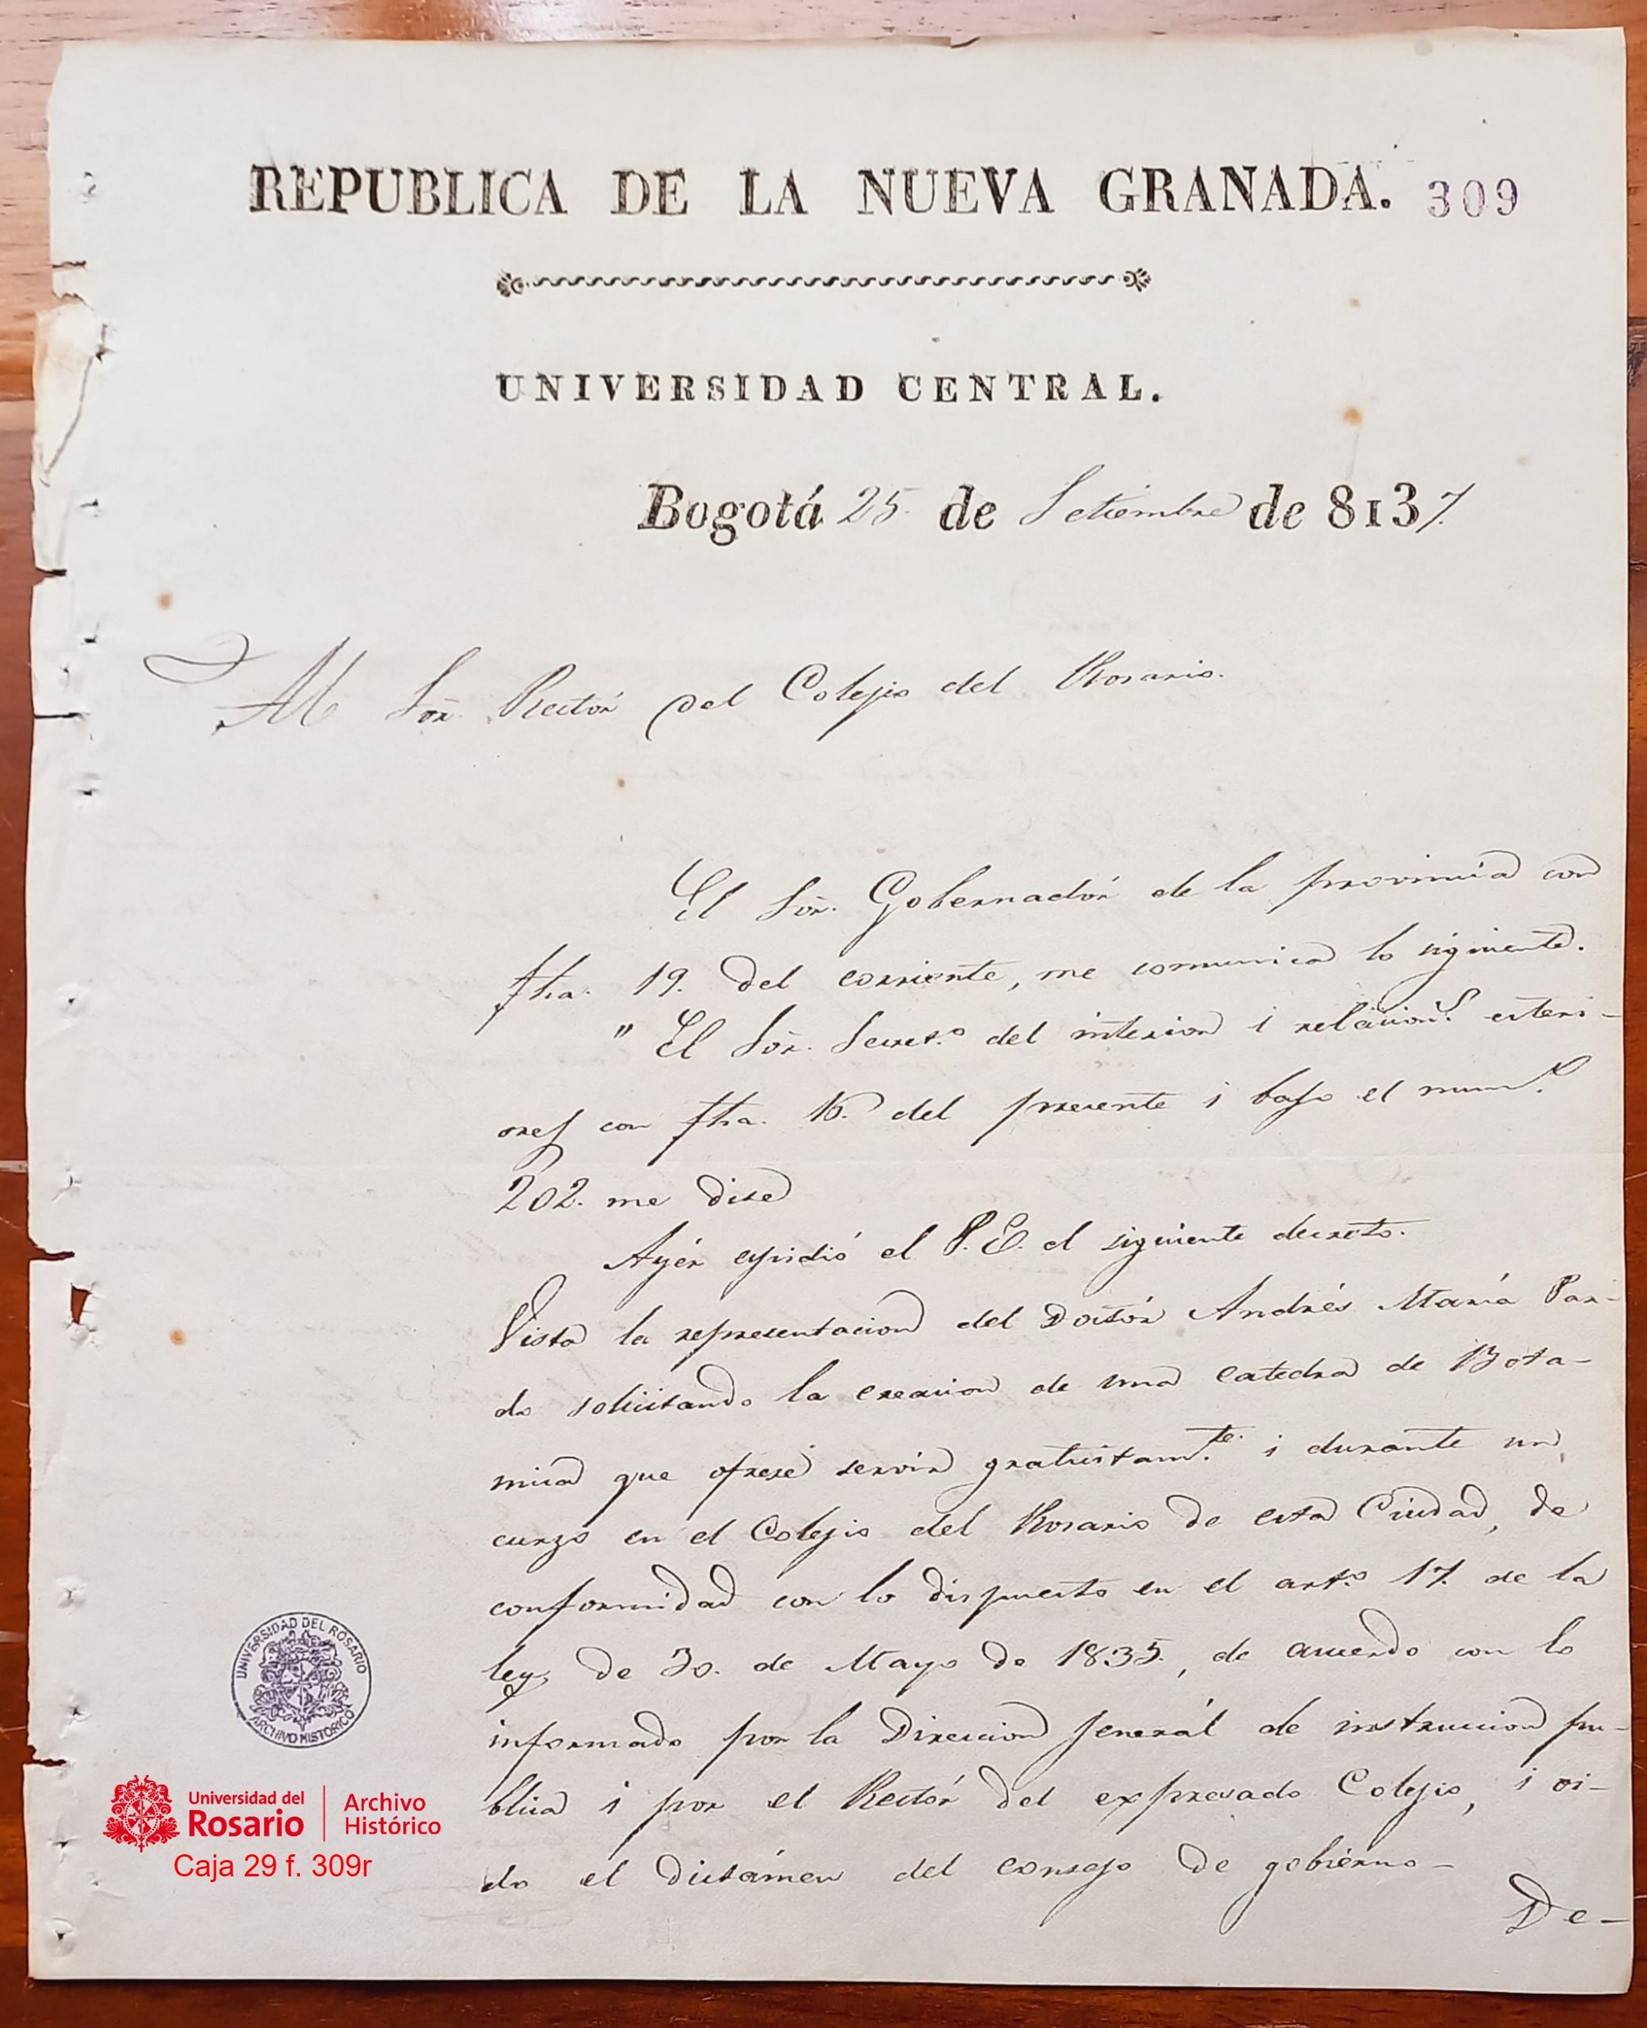 REPUBLICA DE LA NUEVA GRANADA. 309
UNIVERSIDAD CENTRAL.
Bogotá 25 de Setiembre de 8137.
Al Sor. Rectór del Colejio del Rosario.
El Sor. Gobernadór de la provincia con
fha. 19. del corriente, me comunica lo siguiente.
" El Sor. Secret.º del interior i relacion.s esteri-
ores con fha. 16. del presente i bajo el num.º
202. me dice
Ayér espidió el P. E. el siguiente decreto.
Vista la representacion del Doctór Andrés María Par-
do solicitando la creacion de una catedra de Bota-
nica que ofrece servir gratuitam.te i durante un
curso en el Colejio del Rosario de esta Ciudad, de
conformidad con lo dispuesto en el art.º 17. de la
ley de 30. de Mayo de 1835., de acuerdo con lo
informado por la Direccion jenerál de instruccion pu-
blica i por el Rectór del expresado Colejio, i oi-
do el dictámen del consejo de gobierno-
De-
UNIVERSIDAD DEL ROSARIO
ARCHIVO HISTORICO
Universidad del
Rosario
Archivo
Histórico
Caja 29 f. 309r